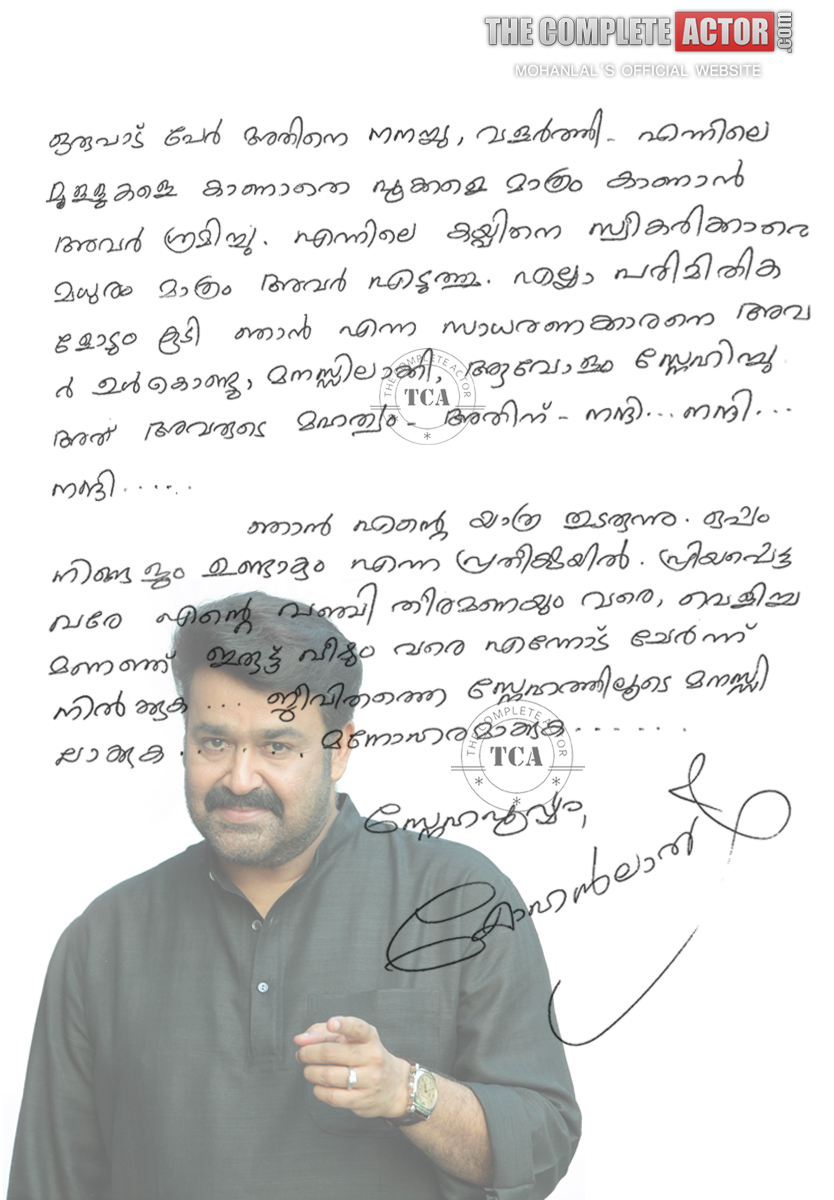 THE COMPLETE ACTOR .com
MOHANLAL'S OFFICIAL WEBSITE
ഒരുപാട് പേർ അതിനെ നനച്ചു, വളർത്തി - എന്നിലെ
മുള്ളുകളെ കാണാതെ പൂക്കളെ മാത്രം കാണാൻ
അവർ ശ്രമിച്ചു. എന്നിലെ കയ്പിനെ സ്വീകരിക്കാതെ
മധുരം മാത്രം അവർ എടുത്തു. എല്ലാ പരിമിതിക
ളോടും കൂടി ഞാൻ എന്ന സാധരണക്കാരനെ അവ
ർ ഉൾകൊണ്ടു, മനസ്സിലാക്കി, ആവോളം സ്നേഹിച്ചു
അത് അവരുടെ മഹത്വം - അതിന് - നന്ദി... നന്ദി...
നന്ദി......
ഞാൻ എന്റെ യാത്ര തുടരുന്നു. ഒപ്പം
നിങ്ങളും ഉണ്ടാകും എന്ന പ്രതീക്ഷയിൽ. പ്രിയപ്പെട്ട
വരേ എന്റെ വഞ്ചി തീരമണയും വരെ, വെളിച്ച
മണഞ്ഞ് ഇരുട്ട് വീഴും വരെ എന്നോട് ചേർന്ന്
നിൽക്കുക ... ജീവിതത്തെ സ്നേഹത്തിലൂടെ മനസ്സി
ലാക്കുക . . . . മനോഹരമാക്കുക.......
THE COMPLETE ACTOR
TCA
THE COMPLETE ACTOR
TCA
സ്നേഹപൂർവ്വം,
മോഹൻലാൽ